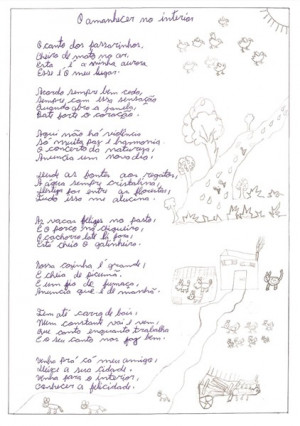 O amanhecer no interior
O canto dos passarinhos,
Cheiro de mato no ar,
Esta é a minha aurora,
Esse é o meu lugar.
Acordo sempre bem cedo,
Sempre com essa sensação
Quando abro a janela,
Bate forte o coração.
Aqui não há violência
Só muita paz e harmonia.
O concerto da natureza,
Anuncia um novo dia.
as fontes aos regatos,
A água sempre cristalina,
por entre as flores,
Tudo isso me alucina.
As vacas felizes no pasto,
E o porco no chiqueiro,
O cachorro late lá fora,
Está cheio o galinheiro.
Nossa cozinha é grande,
E cheia de picumã,
E um fio de fumaça,
Anuncia que é de manhã.
Tem até carro de bois,
Num constante vai e vem,
Que canto enquanto trabalha
E o seu canto nos faz bem.
Venha pra cá meu amigo,
Deixe a sua cidade.
Venha para o interior,
Conhecer a felicidade.